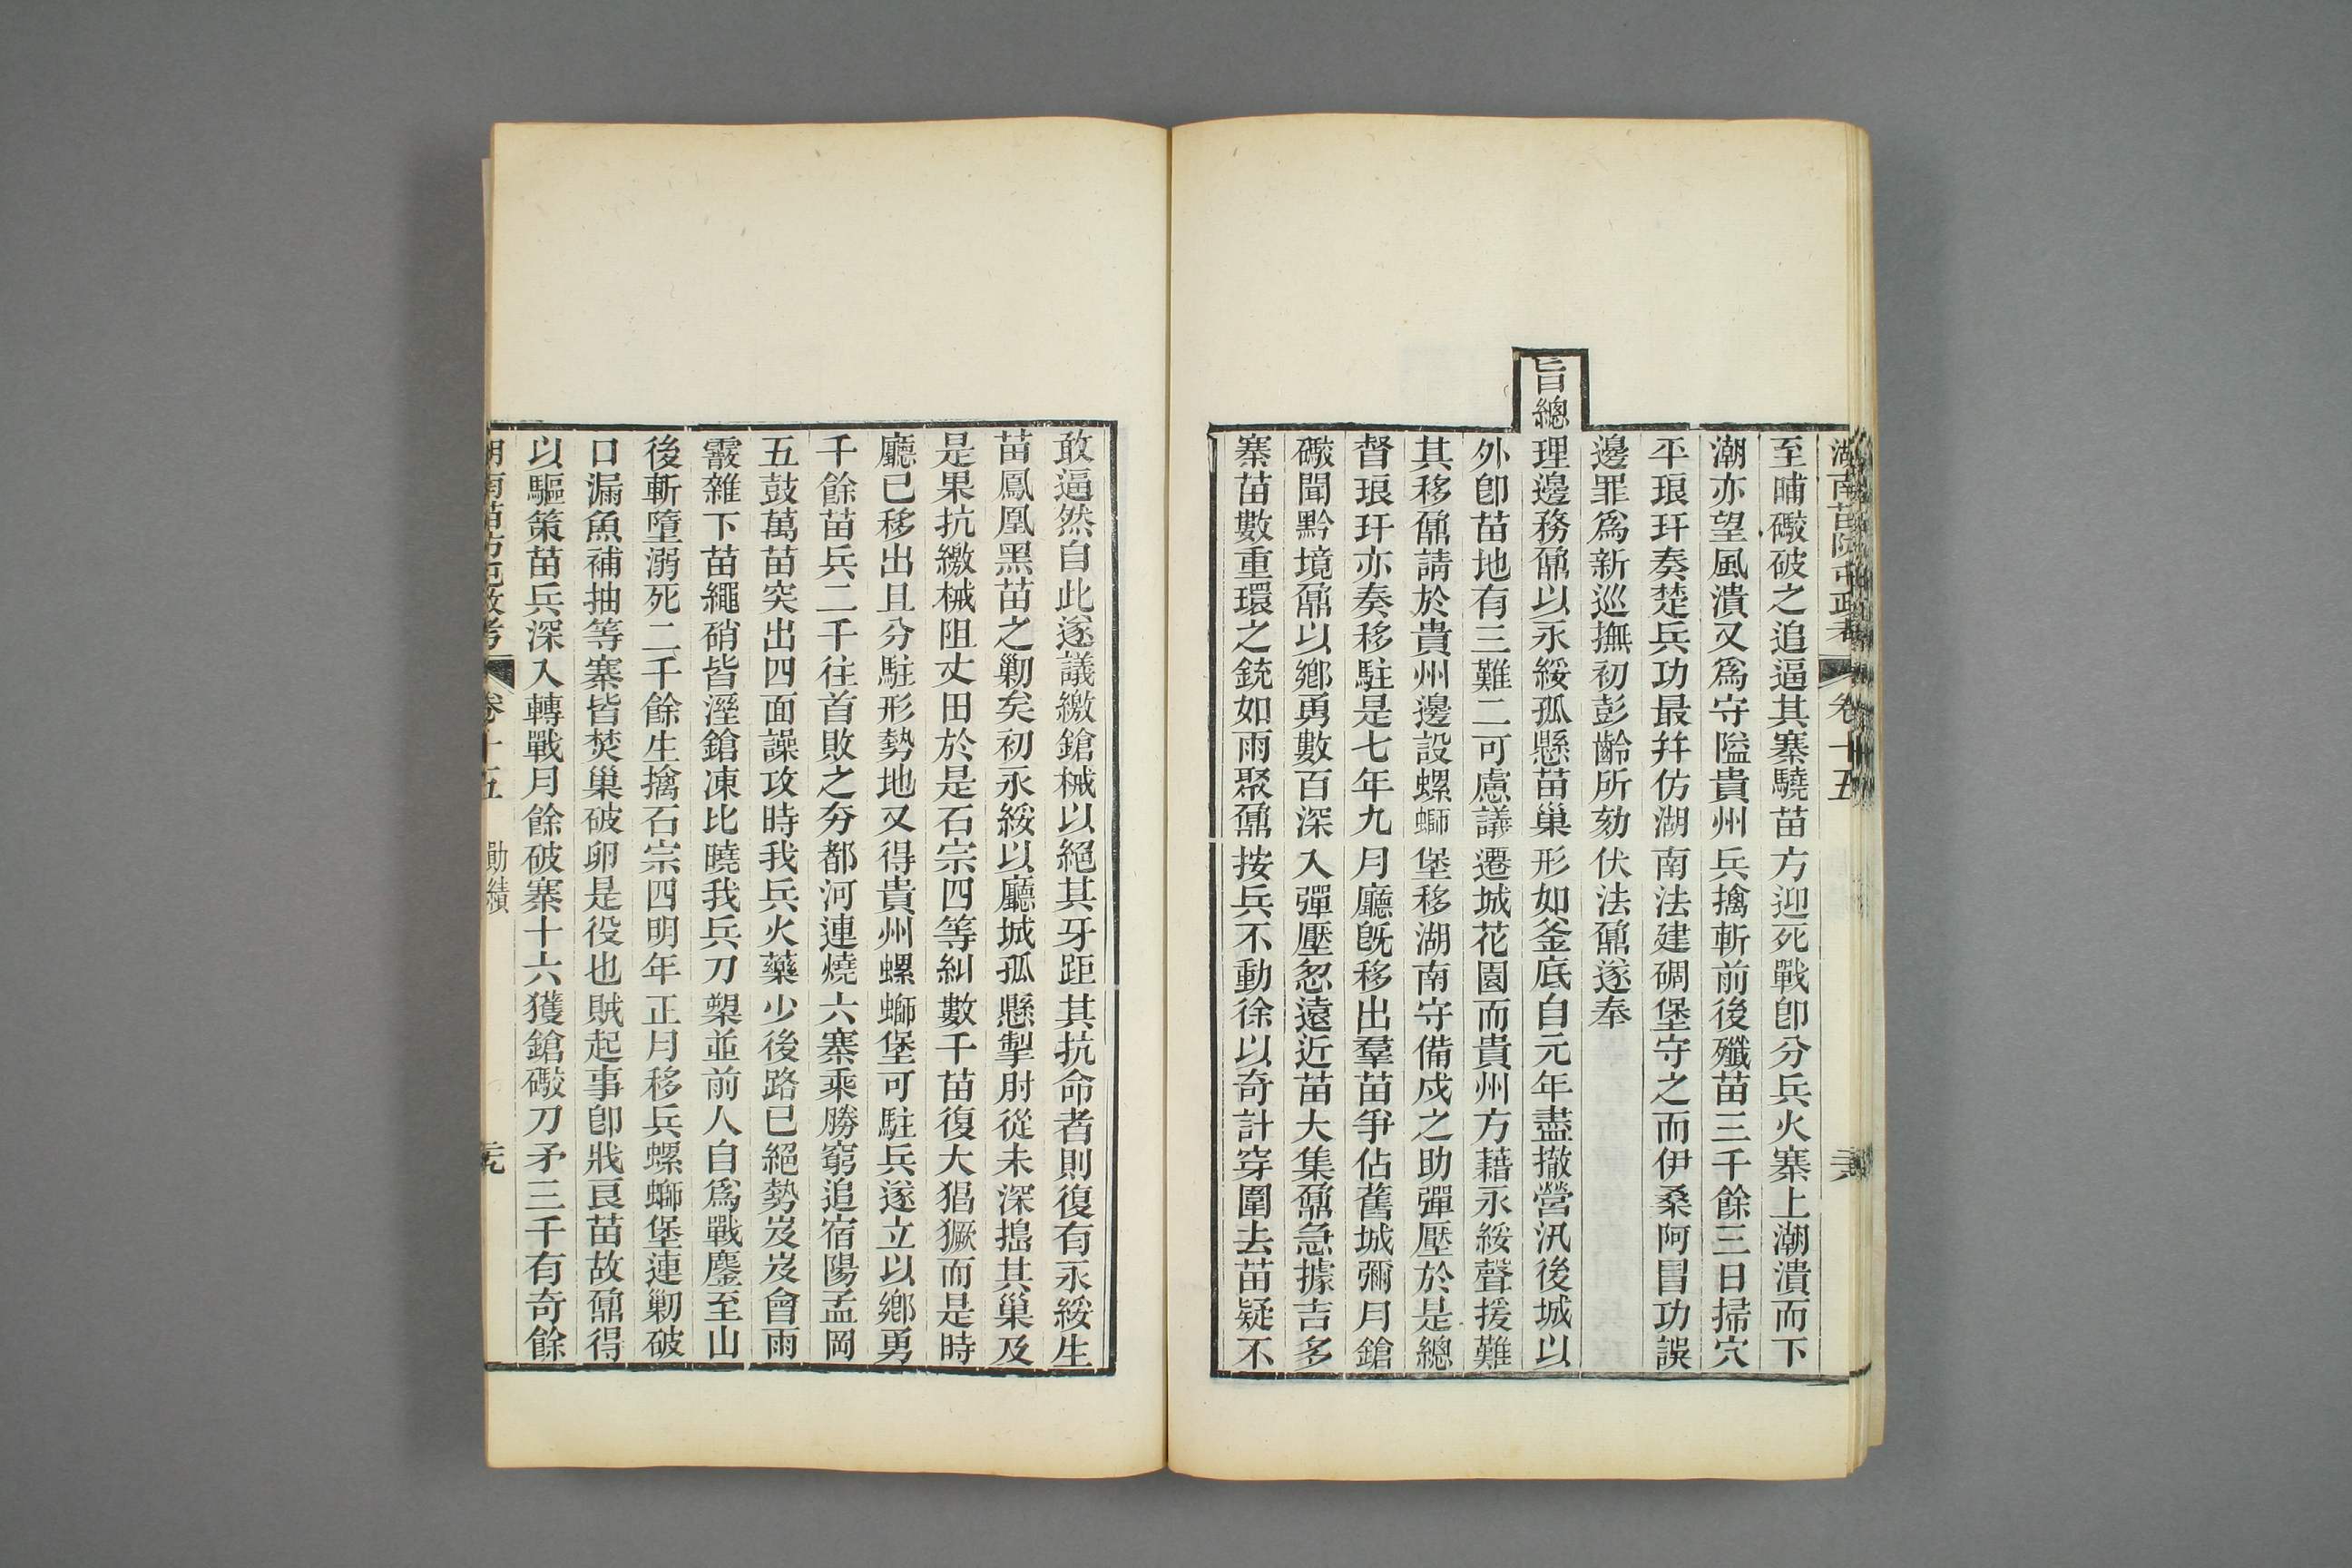 湖南苗防屯政考 卷十五
至晡礮破之追逼其寨驍苗方迎死戰卽分兵火寨上潮潰而下
潮亦望風潰又爲守隘貴州兵擒斬前後殲苗三千餘三日掃穴
平琅玕奏楚兵功最幷仿湖南法建碉堡守之而伊桑阿冒功誤
邊罪爲新巡撫初彭齡所劾伏法鼐遂奉
旨總理邊務鼐以永綏孤懸苗巢形如釜底自元年盡撤營汛後城以
外卽苗地有三難二可慮議遷城花園而貴州方藉永綏聲援難
其移鼐請於貴州邊設螺螄堡移湖南守備戍之助彈壓於是總
督琅玕亦奏移駐是七年九月廳旣移出羣苗爭佔舊城彌月鎗
礮聞黔境鼐以鄕勇數百深入彈壓忽遠近苗大集鼐急據吉多
寨苗數重環之銃如雨聚鼐按兵不動徐以奇計穿圍去苗疑不
敢逼然自此遂議繳鎗械以絕其牙距其抗命者則復有永綏生
苗鳳凰黑苗之勦矣初永綏以廳城孤懸掣肘從未深搗其巢及
是果抗繳械阻丈田於是石宗四等糾數千苗復大猖獗而是時
廳已移出且分駐形勢地又得貴州螺螄堡可駐兵遂立以鄕勇
千餘苗兵二千往首敗之夯都河連燒六寨乘勝窮追宿陽孟岡
五鼓萬苗突出四面譟攻時我兵火藥少後路已絕勢岌岌會雨
霰雜下苗繩硝皆溼鎗凍比曉我兵刀槊並前人自爲戰鏖至山
後斬墮溺死二千餘生擒石宗四明年正月移兵螺螄堡連勦破
口漏魚補抽等寨皆焚巢破卵是役也賊起事卽戕良苗故鼐得
以驅策苗兵深入轉戰月餘破寨十六獲鎗礮刀矛三千有奇餘
湖南苗防屯政考 卷十五 勛績 三九